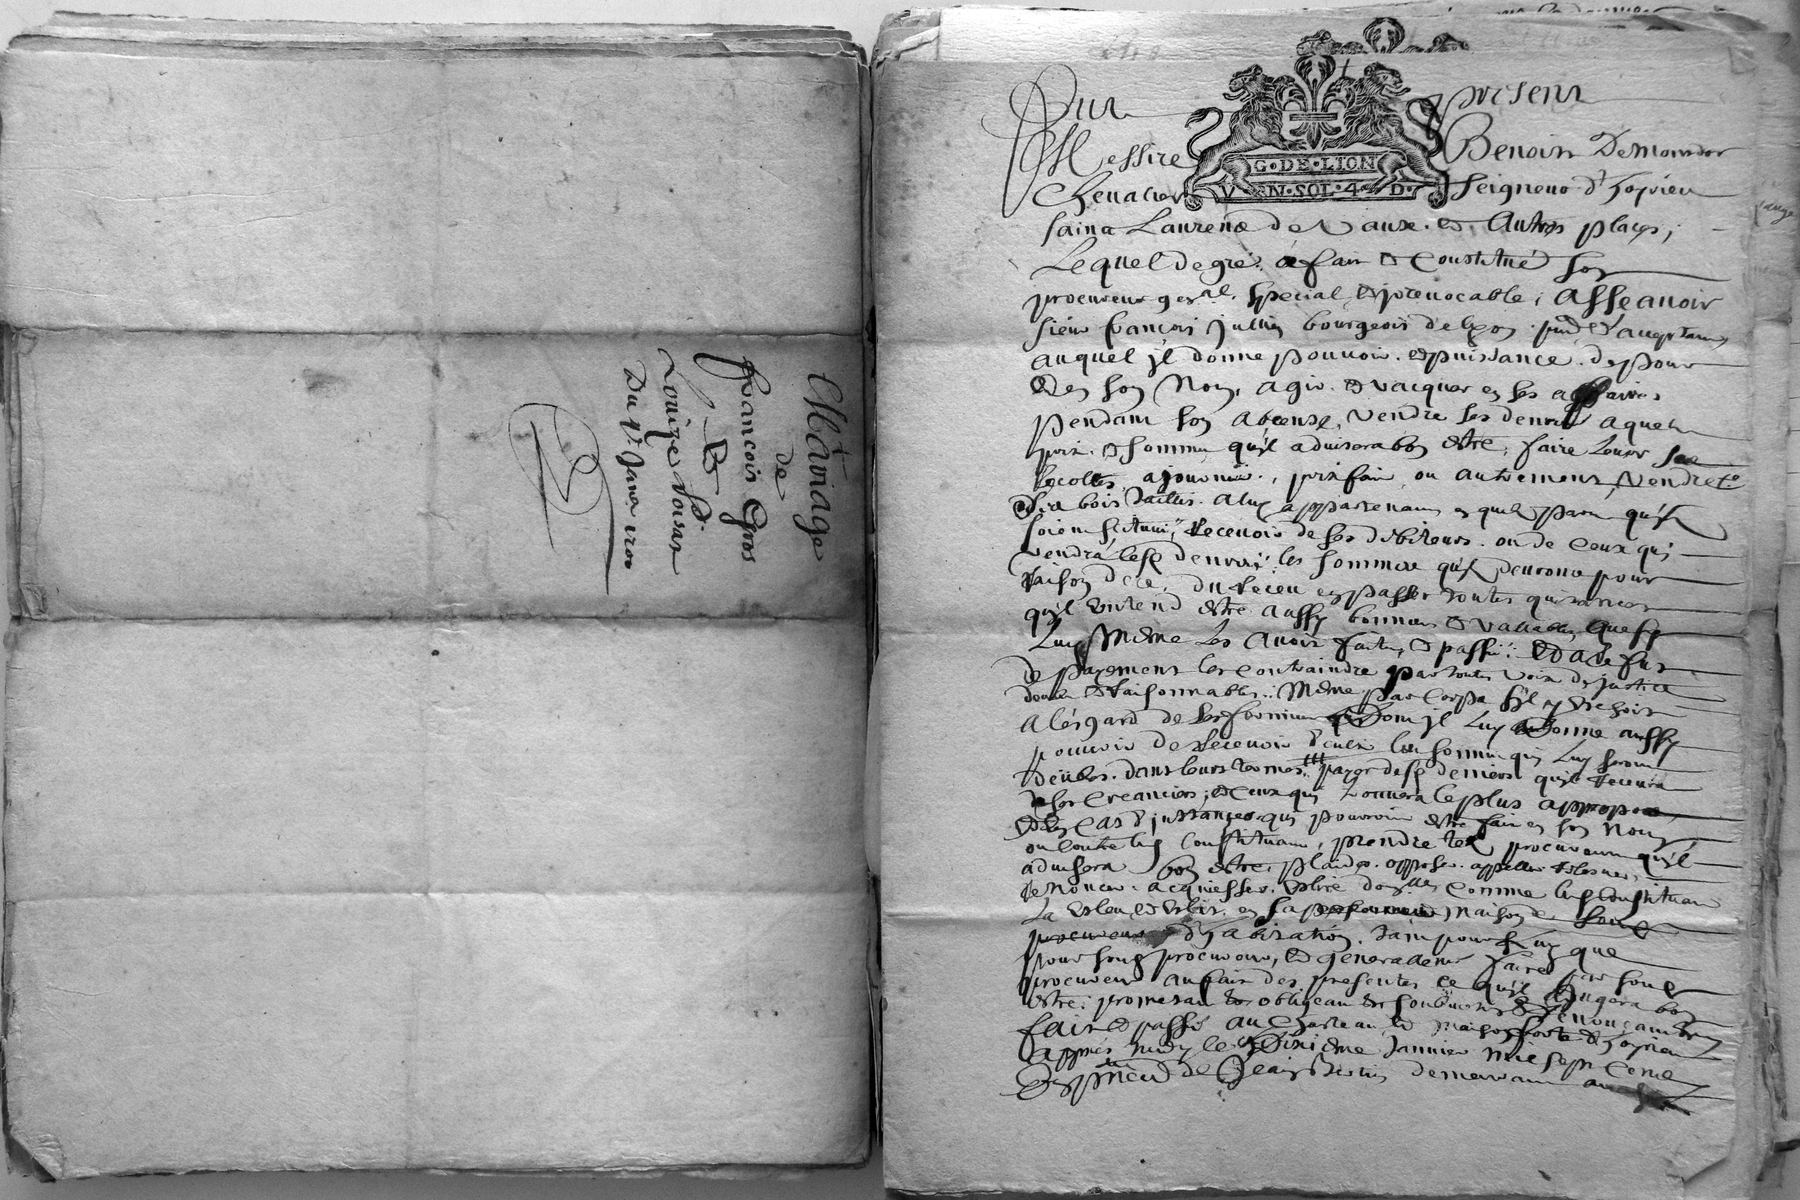 Mariage
de
francois Gros
&
Louize Loisat
Du V Janv 1700
Par
present
G·DE·LION
V·N·SOL·4·D·
Messire Benoist Demondor
Chevalier Seigneur d'hoyrieu
saint Laurent de Vaux et Autres places,
Lequel de gré a fait & Constitué son
procureur general special & irrevocable, asseavoir
sieur francois Jullin bourgeois de Lyon
auquel jl donne pouvoir et puissance de pour
& en son Nom, agir & vacquer en ses affaires
pendant son absence, vendre ses denrées a quel
prix & somme qu'il advisera bon estre, faire Lever ses
Recoltes a journée, prix fait, ou autrement, vendre
bois taillis a luy appartenant en quel part qu'ils
soient situés, Recevoir de ses debiteurs ou de Ceux qui
vendra les denrées les sommes qu'ils devront pour
Raison de ce, du Receu en passer toutes quitances
qu'il entend estre aussy bonnes & vallables que sy
Luy Mesme Les Avoit faites & passées & a Refus
de payement les contraindre par toutes voix de justice
deues & Raisonnables Mesme par Corps s'il y
a l'esgard de ses fermiers dont jl Luy donne aussy
pouvoir de Recevoir d'eux les sommes qui Luy seront
deubes dans leurs termes payer des deniers qu'il Recevra
Ses Creanciers, & Ceux qui trouvera le plus a propos
& En Cas d'instances qui pourroient estre fait en son Nom
ou Contre led Constituant, prendre tel procureur qu'il
advisera bon estre, plaider opposer appeller
Renoncer acquiesser Eslire domicille comme led Constituant
La Esleu & Eslit en sa maison
procureur d'habitation tant pour Luy que
pour sond procureur, & generalement faire par sond
procureur au fait des presentes ce qu'il jugera bon
estre, promettant & obligeant & soubmettant & Renonçant
fait & passé au Chasteau & maison forte d'hoyrieu
appres midy le Janvier mil sept Cent
de Jean demeurant au